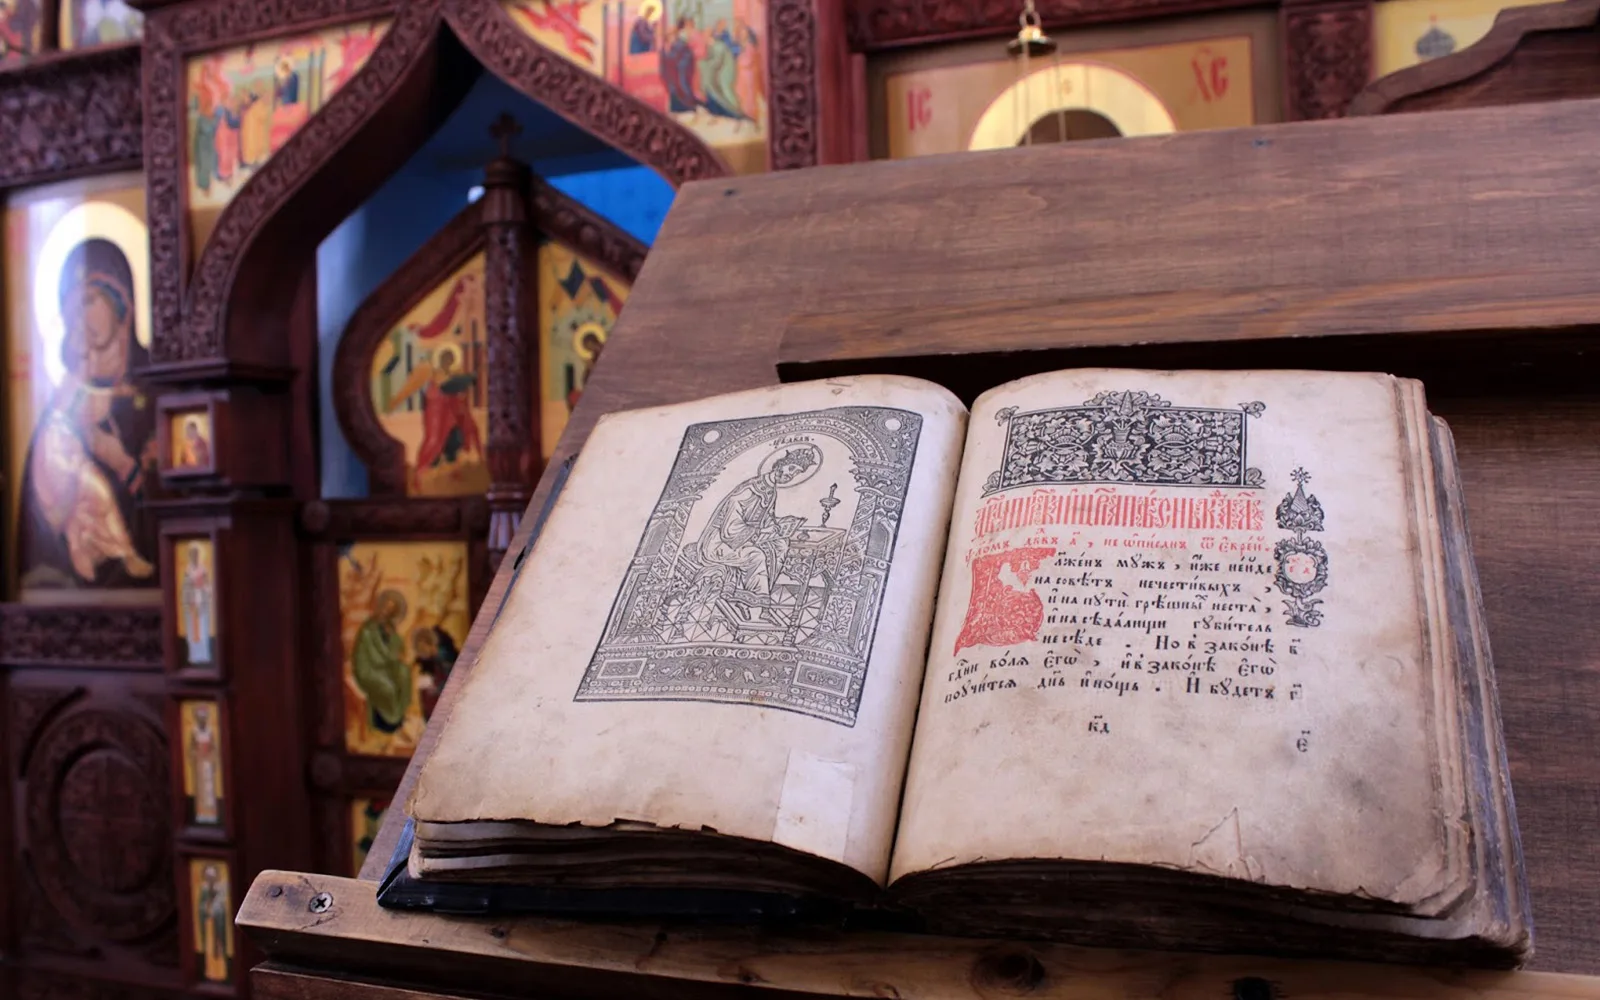 ІС ХС
Ѱало́мъ дв҃дъ, а҃, не ѡ҆пи́санъ ѿ є҆вре́й.
Бл҃же́нъ мꙋ́жъ, и҆́же неи́де
на совѣ́тъ нечести́выхъ,
и҆ на пꙋти̑ грѣ́шныⷯ неста̀,
и҆ на сѣда́лищи гꙋби́тель
не сѣ́де. Но в зако́нѣ в҃
гдⷭ҇ни во́лѧ є҆гѡ̀, и҆ в зако́нѣ є҆гѡ̀
поꙋчи́тсѧ дн҃ь и҆ но́щь. И҆ бꙋ́детъ г҃
к҃д
є҃